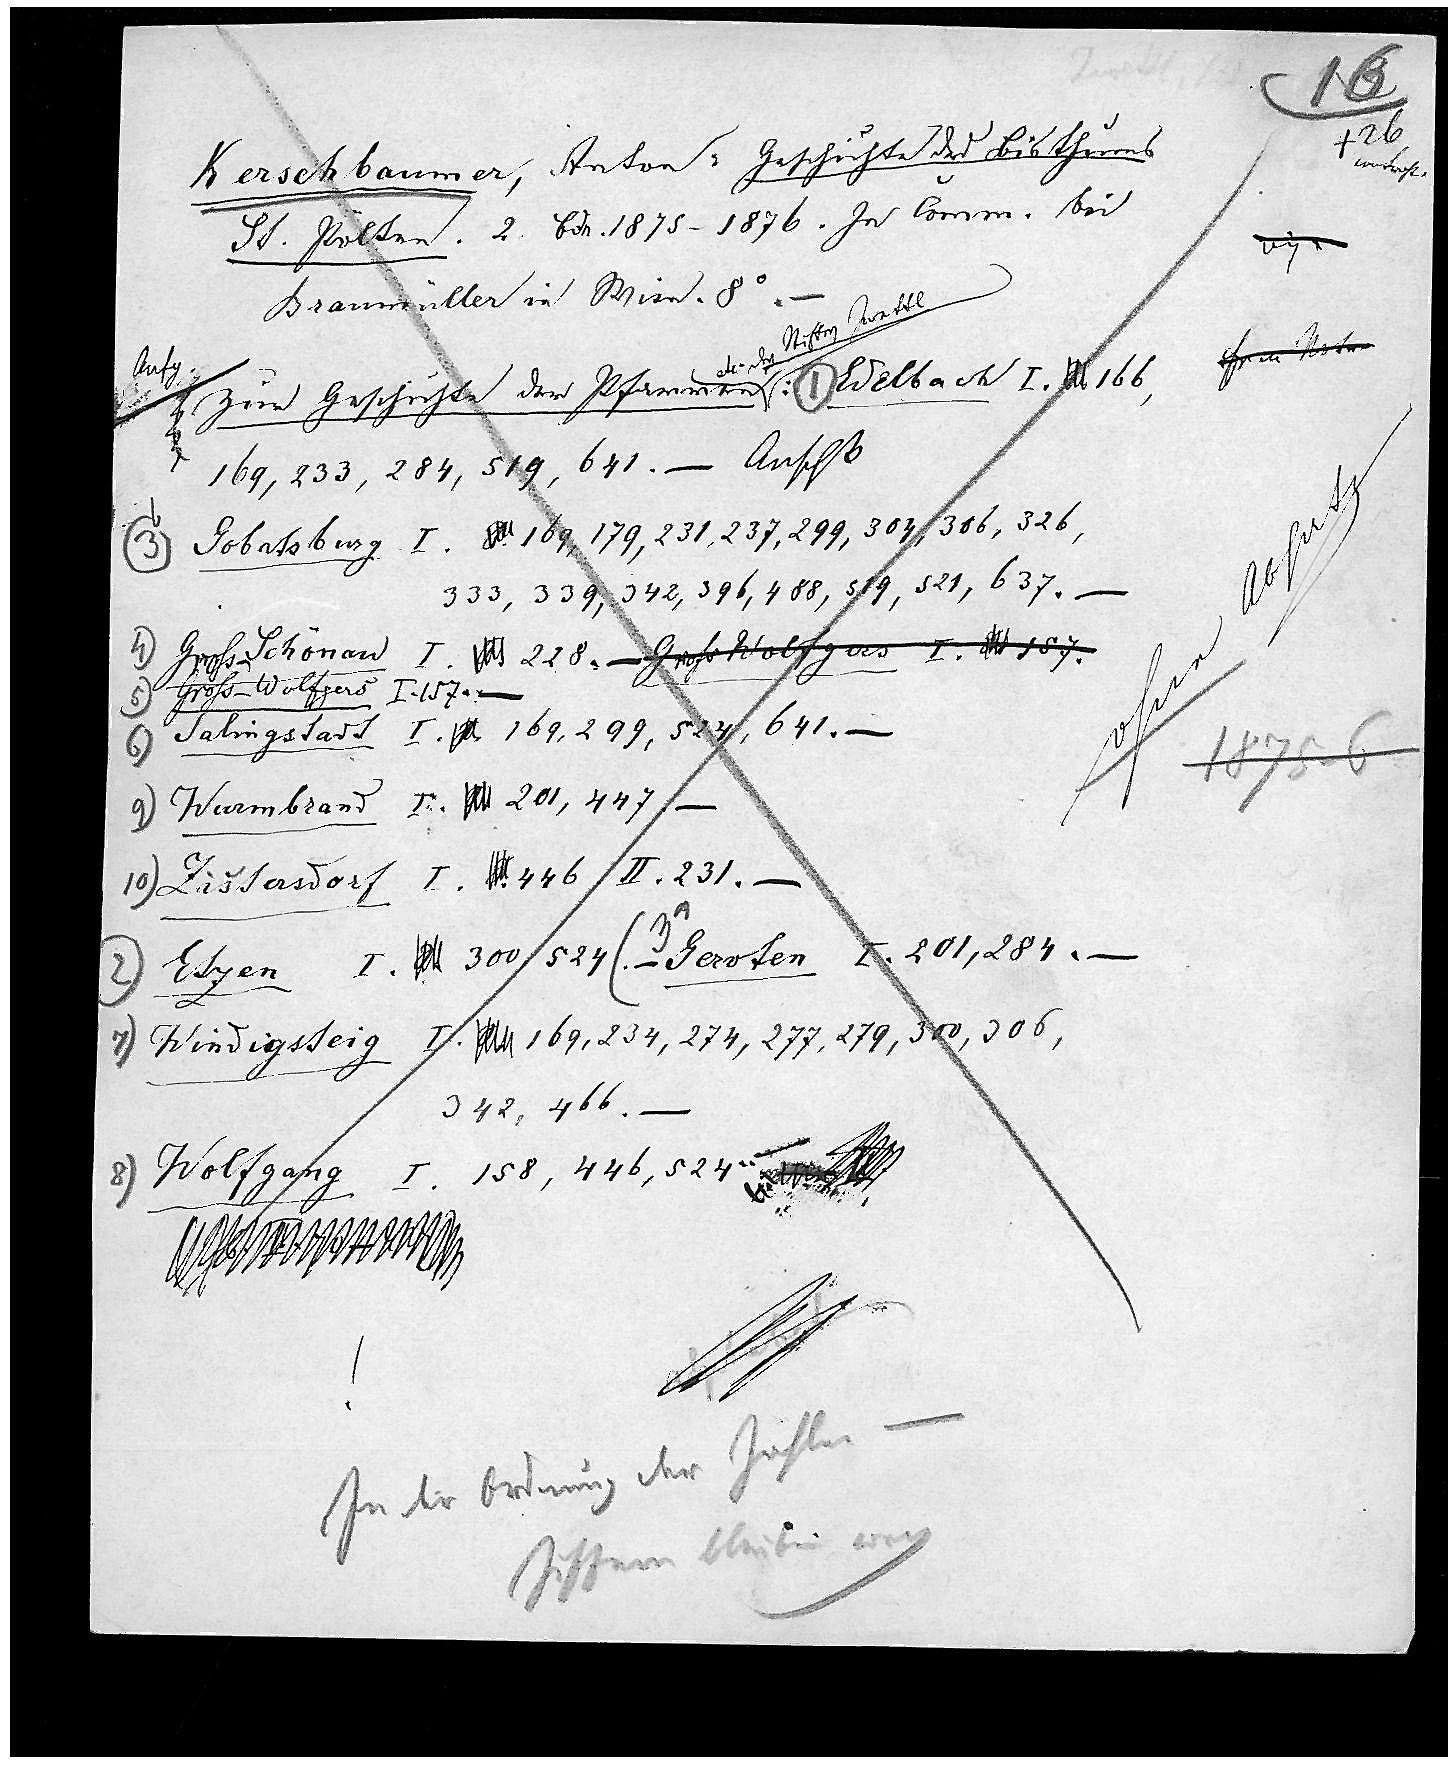 16
+26
Kerschbaumer, Anton: Geschichte des Bisthums
St. Pölten. 2 Bde. 1875-1876. In Comm. bei
Braumüller in Wien. 8°. —
des Stiftes Zwettl
Zur Geschichte der Pfarren: 1 Edelbach I. 166,
169, 233, 284, 519, 641. — Anschß
3b Gobatsburg I. 169, 179, 231, 237, 299, 304, 306, 326,
333, 339, 342, 396, 488, 519, 521, 637. —
ohne Absatz
4) Gross-Schönau I. 228. — Gross Wolfgers I. 157.
5) Gross-Wolfgers I. 157. —
6) Salingstadt I. 169, 299, 524, 641. —
1875-6
9) Wurmbrand I. 201, 447. —
10) Zistersdorf I. 446 II. 231. —
2) Etzen I. 300, 524 (. — 3a Geroten I. 201, 284. —
7) Windigsteig I. 169, 234, 274, 277, 279, 300, 306,
342, 466. —
8) Wolfgang I. 158, 446, 524. —
!
In der Ordnung der Zahlen —
Ziffern bleiben weg